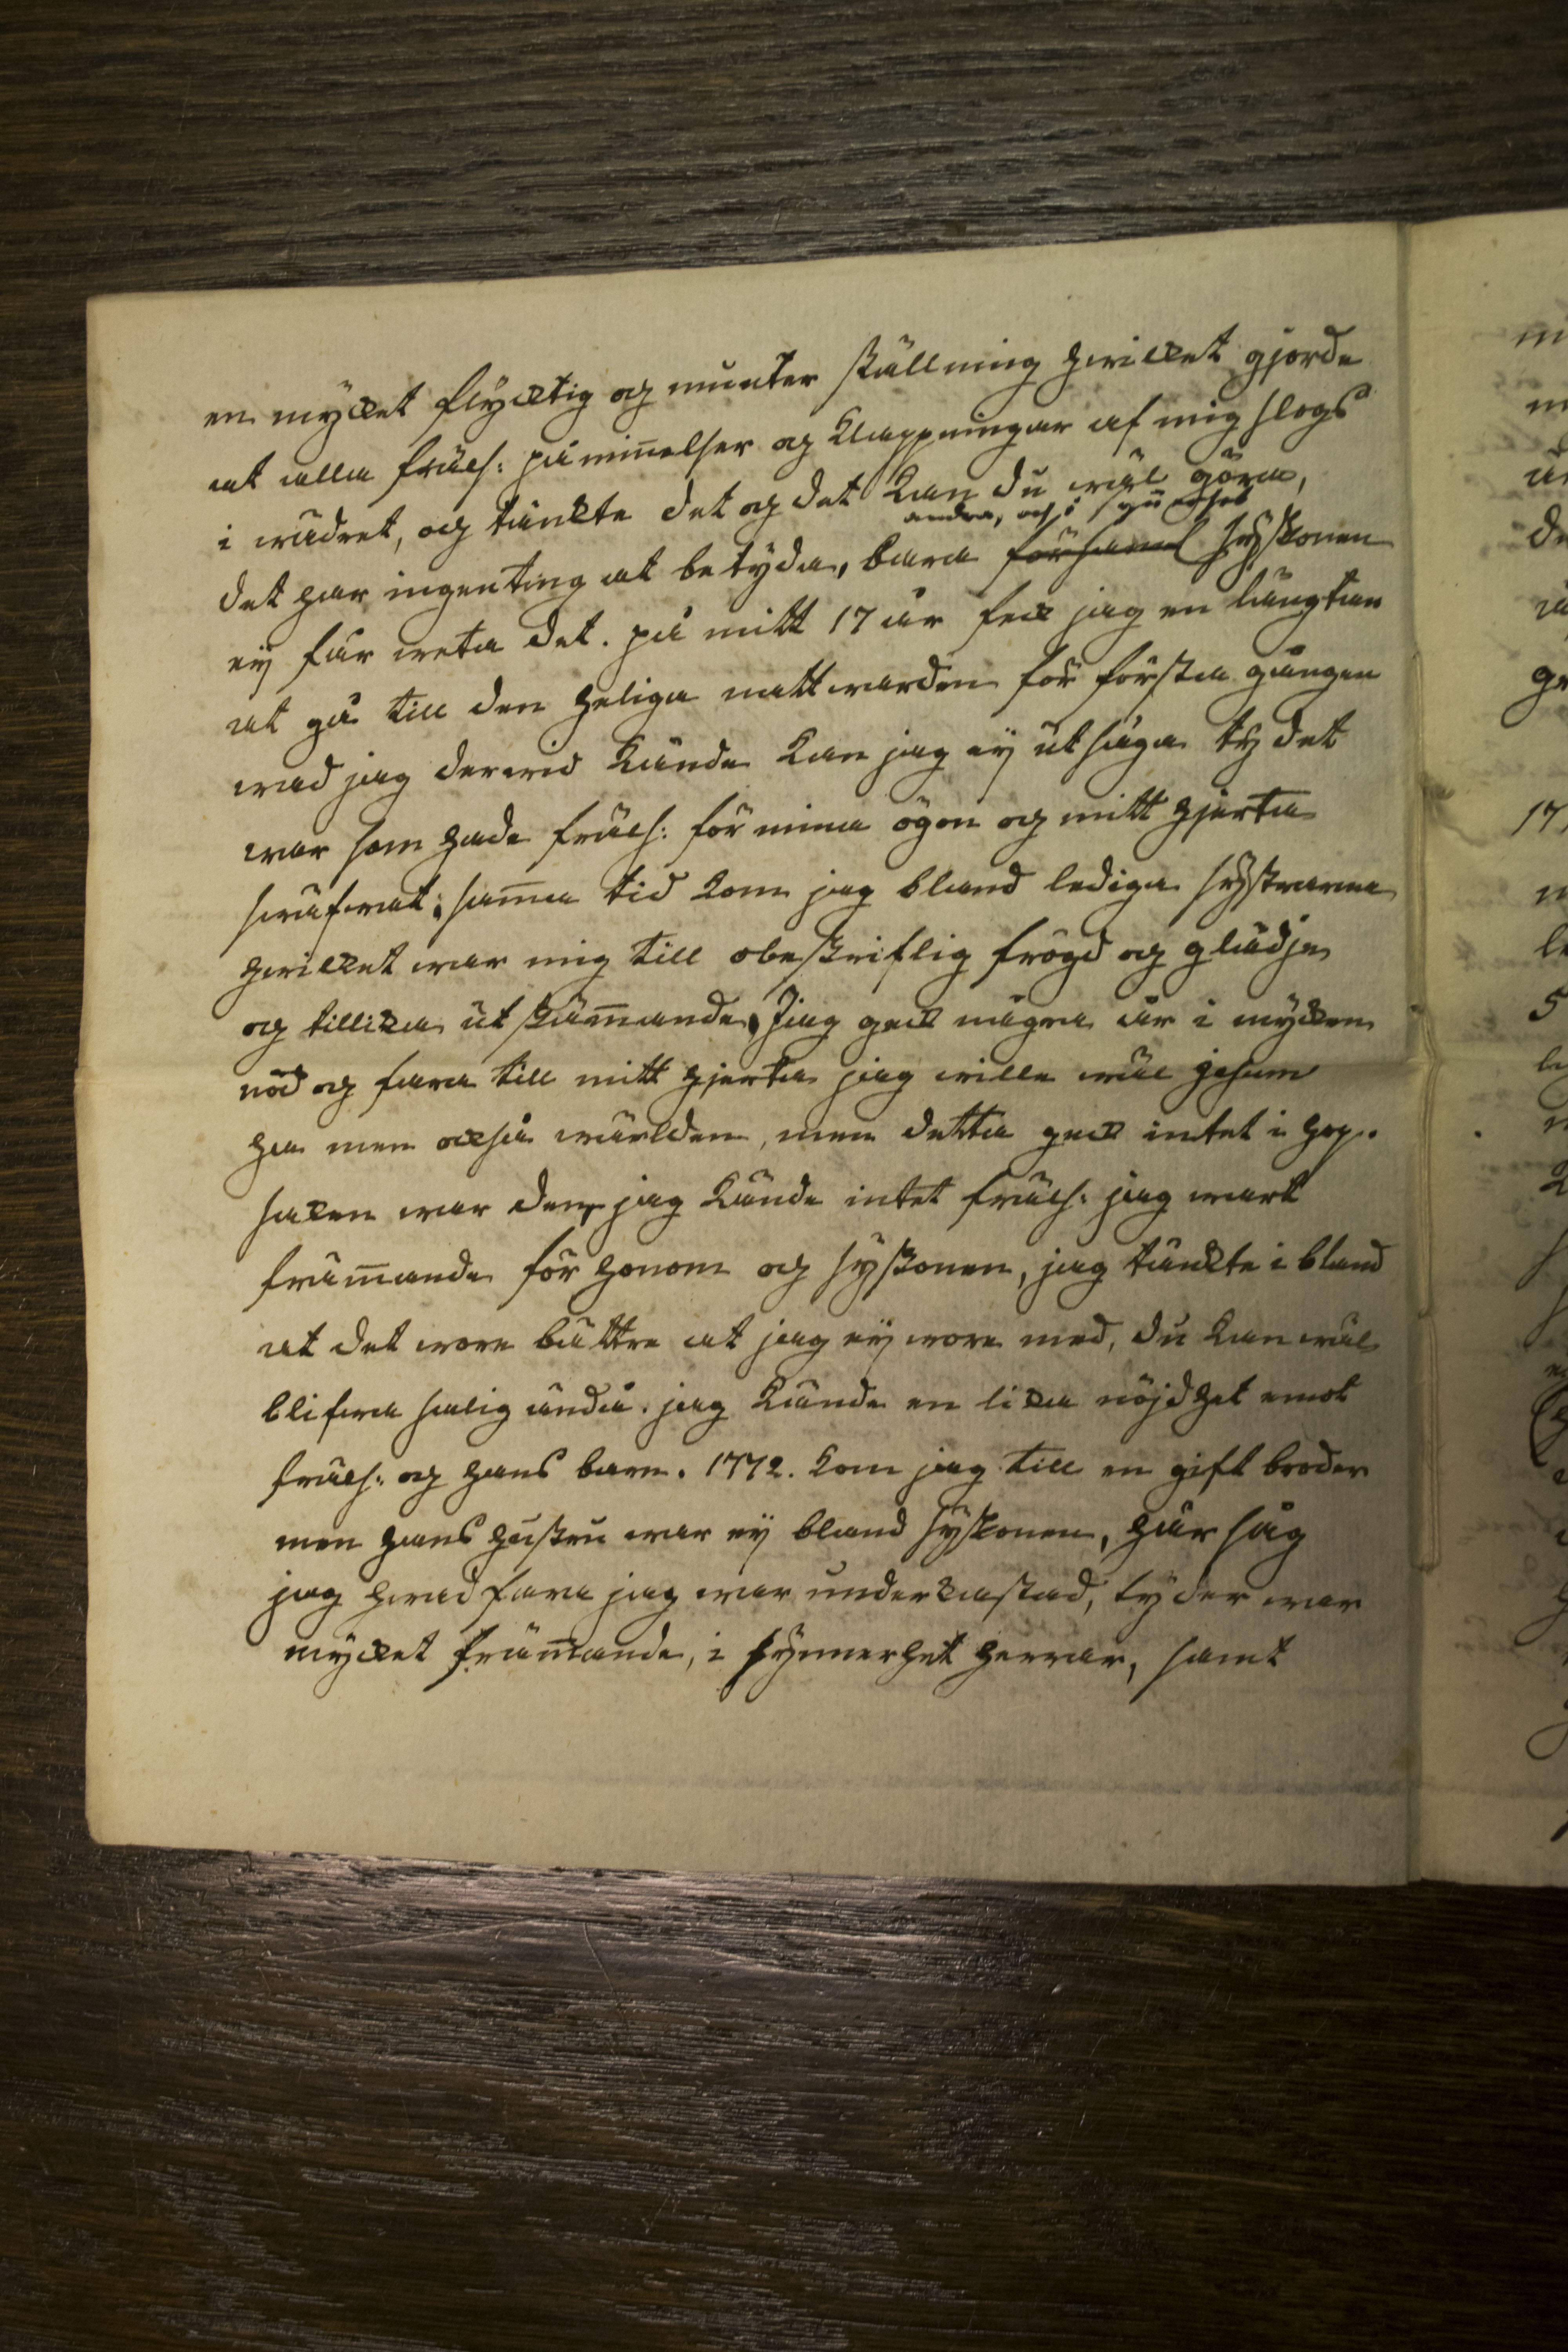 en mycket flycktig og munter ställning hwilket gjorde
at alla fräls: påmin̄elser og klappningar af mig slogs
i wädret, og tänkte det og det kan du wäl göra,
andra, och i
det har ingenting at betyda, bara syskonen
eÿ får weta det. på mitt 17 år feck jag en längtan
at gå till den heliga nattwarden för första gången
wad jag derwid kände kan jag eÿ utsäga tÿ det
war som hade fräls: för mina ögon og mitt hjerta
swäfwat; sam̄a tid kom jag bland lediga systrarna
hwilket war mig till obeskriflig frögd og glädje
og tillika utskäm̄ande, Jag geck några år i mycken
nöd og fara till mitt hjerta jag wille wäl jesum
ha men också wärlden, men detta geck intet i hop.
saken war den, jag kände intet fräls: jag wart
främ̄ande för honom og syskonen, jag tänkte i bland
at det wore bättre at jag eÿ wore med, du kan wäl
blifwa salig ändå. jag kände en lika nöjdhet emot
fräls: og hans barn. 1772. kom jag till en gift broder
men hans hustru war eÿ bland syskonen, här såg
jag hwad fara jag war underkastad, tÿ der war
mycket främ̄ande, i synnerhet herrar, samt
17